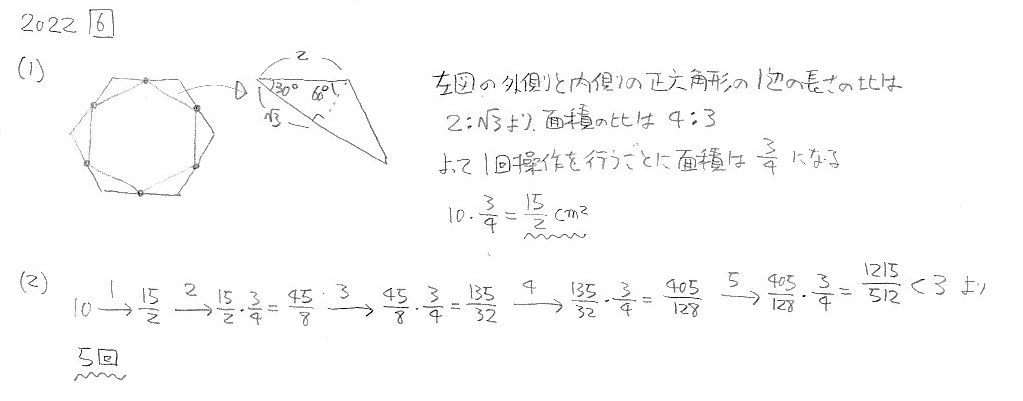 2022 6
(1)
2
30° 60°
√3
左図の外側と内側の正六角形の1辺の長さの比は
2:√3より、面積の比は 4:3
よって1回操作を行うごとに面積は 3/4 になる
10・3/4 = 15/2 cm²
(2) 10 →1 15/2 →2 15/2・3/4 = 45/8 →3 45/8・3/4 = 135/32 →4 135/32・3/4 = 405/128 →5 405/128・3/4 = 1215/512 < 3 より
5回